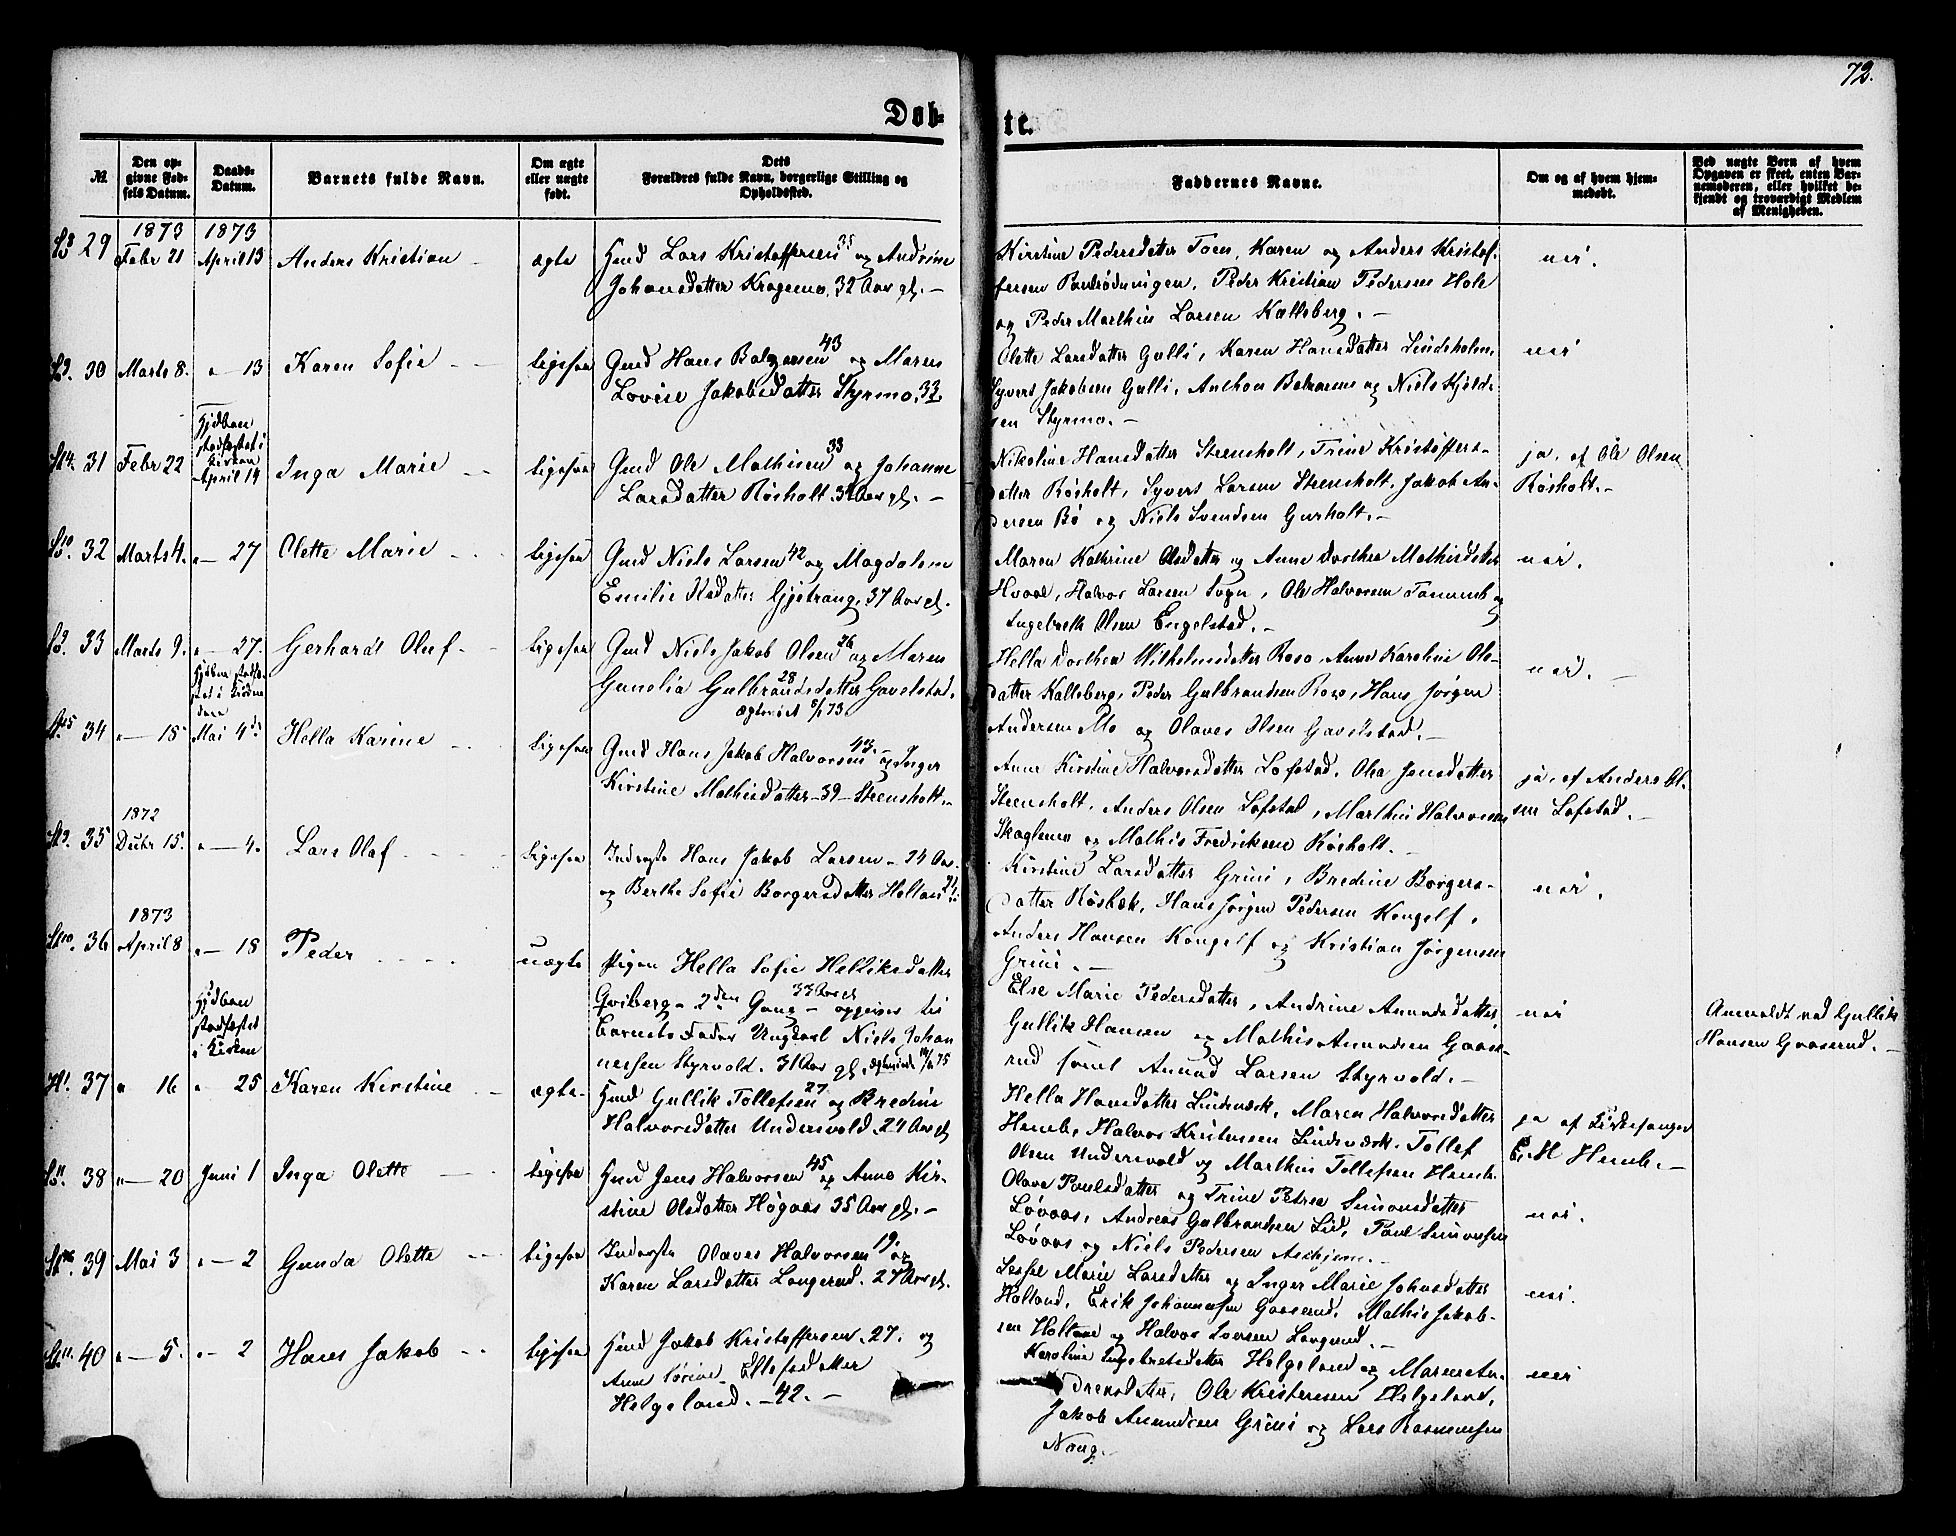 72.
Døb-
te.
№.
Den op-
givne Fød-
sels Datum.
Daabs-
Datum.
Barnets fulde Navn.
Om ægte
eller uægte
født.
Dets
Forældres fulde Navn, borgerlige Stilling og
Opholdssted.
Faddernes Navne.
Om og af hvem hjem-
medøbt.
Ved uægte Børn af hvem
Opgaven er skeet, enten Bar-
nemoderen, eller hvilket be-
kjendt og troværdigt Medlem
af Menigheden.
1873 1873
29 Febr 21 April 13 Anders Kristian ægte Gmd Lars Kristoffersen 35 og Andrine
Johansdatter Kragemo, 32 Aar gl. —
Kirstine Pedersdatter Toen, Karen og Anders Kristof-
fersen, Peder Kristian Pedersen Hole
og Peder Marthin Larsen Kalleberg. —
nei.
30 Marts 8. " — 13 Karen Sofie ligesaa Gmd Hans 43 og Maren
Lovise Jakobsdatter Styrmo, 33
Olette Larsdatter Gulli, Karen Hansdatter Lindeholm,
Syvert Jakobsen Gulli, Anthon og Niels Kjeld-
sen Styrmo. —
nei
Hjdbøn
stadfæstet i
Kirken
31 Febr 22 April 14 Inga Marie ligesaa Gmd Ole Mathisen 33 og Johanne
Larsdatter Røsholt 31 Aar gl. —
Nikoline Hansdatter Steensholt, Trine Kristoffers-
datter Røsholt, Syvert Larsen Steensholt, Jakob An-
dersen Bø og Niels Svendsen Gurholt. —
ja, af Ole Olsen
Røsholt. —
32 Marts 4. " — 27 Olette Marie ligesaa Gmd Niels Larsen 42 og Magdalene
Emilie, 37 Aar gl.
Maren Kathrine Olsdatter og Anne Dorthea Mathisdatter
Hvaal, Halvor Larsen Sogn, Ole Halvorsen og
Ingebreth Olsen Engelstad. —
nei.
33 Marts 9. " — 27. Gerhard Oluf ligesaa Gmd Niels Jakob Olsen 26 og Maren
Gunelia Gulbrandsdatter 28 Gavelstad.
Ægteviet 5/1 73
Hella Dorthea Wilhelmsdatter Roso, Anne Karoline Ols-
datter Kalleberg, Peder Gulbrandsen Roso, Hans Jørgen
Andersen Mo og Olaves Olsen Gavelstad. —
nei. —
34 " — 18 Mai 4de Hella Karine ligesaa Gmd Hans Jakob Halvorsen 43. og Inger
Kirstine Mathisdatter — 39 — Steensholt. —
Anne Kirstine Halvorsdatter Løfstad, Olea Jensdatter
Steensholt, Anders Olsen Løfstad, Marthin Halvorsen
Skaglemo og Mathis Fredriksen Røsholt. —
ja, af Anders Ol-
sen Løfstad. —
1872
35 Decbr 15. " — 4. Lars Olaf ligesaa Inderste Hans Jakob Larsen — 24 Aar
og Berthe Sofie Borgersdatter Holland
Kirstine Larsdatter Grini, Bredine Borgers-
datter Røsbæk, Hans Jørgen Pedersen Kongelf,
Anders Hansen Kongelf og Kristian Jørgensen
Grini. —
nei.
1873
36 April 8 " — 18 Peder uægte Pigen Hella Sofie Helliksdatter
Qviberg — 2den Gang 33 Aar gl — opgiver til
Barnets Fader Ungkarl Niels Johan
nessen Styrvold. 31 Aar gl.
Else Marie Pedersdatter, Andrine Amundsdatter,
Gullik Hansen og Mathis Amundsen Gaase-
rud samt Amund Larsen Styrvold. —
nei
Anmeldt ved Gullik
Hansen Gaaserud. —
Hjdbøn
stadfæstet
i Kirken
37 " 16 " — 25 Karen Kirstine ægte Gmd Gullik Tollefsen 27 og Bredine
Halvorsdatter Undersvold. 24 Aar gl
Hella Hansdatter Lindeværk, Maren Halvorsdatter
Hemb, Halvor Kristensen Lindeværk, Tollef
Olsen Undersvold og Marthin Tollefsen Hemb.
ja af Kirkesanger
E. H Hemb. —
38 " — 20 Juni 1 Inga Olette ligesaa Gmd Jens Halvorsen 45 og Anne Kir-
stine Olsdatter Høgaas 35 Aar gl. —
Olava Paulsdatter og Trine Petrea Simonsdatter
Løvaas, Andreas Gulbrandsen Lid, Paul Simonsen
Løvaas og Niels Pedersen Askjem. —
nei.
39 Mai 3 " — 2 Gunda Olette ligesaa Inderste Olaves Halvorsen 19. og
Karen Larsdatter Langerud. 27 Aar gl.
Marie Larsdatter og Inger Marie Johnsdatter
Holland, Erik Johannesen Gaaserud, Mathis Jakob-
sen Holtane og Halvor Iversen Langerud. —
nei.
40 " — 5. " — 2 Hans Jakob ligesaa Gmd Jakob Kristoffersen. 27. og
Anne Sørine Ellefsdatter
Helgeland. — 42. —
Karoline Ingebretsdatter Helgeland og Maren An-
drensdatter, Ole Kristensen Helgeland,
Jakob Amundsen Grini og Lars Rasmussen
Nang.
nei